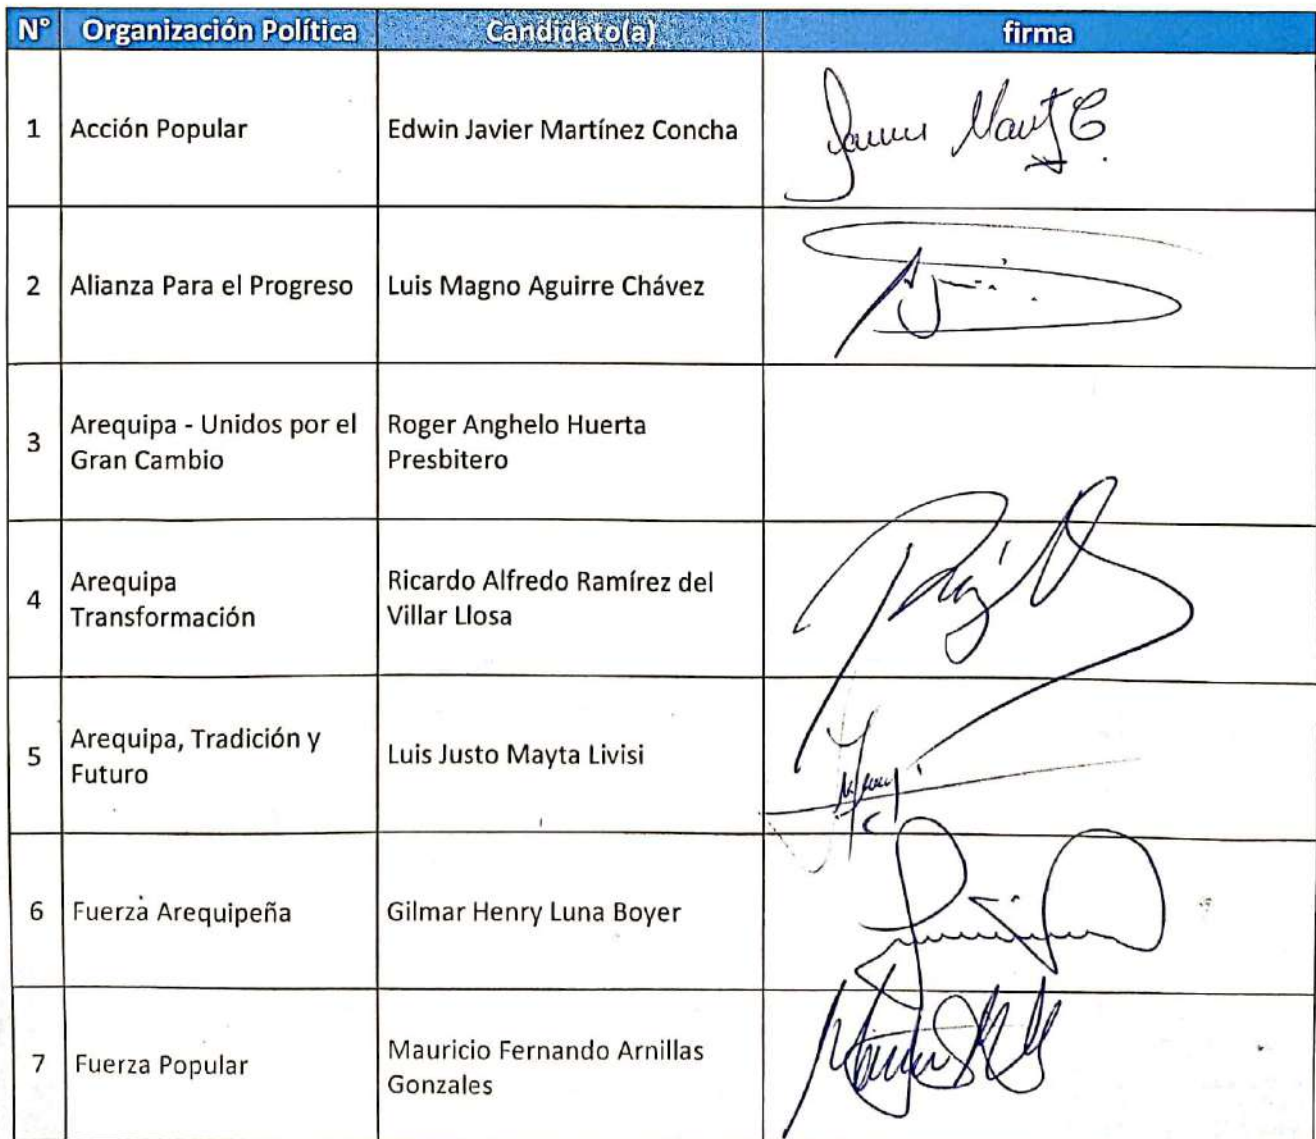 N° Organización Política Candidato(a) firma
1 Acción Popular Edwin Javier Martínez Concha
2 Alianza Para el Progreso Luis Magno Aguirre Chávez
3 Arequipa - Unidos por el Gran Cambio Roger Anghelo Huerta Presbitero
4 Arequipa Transformación Ricardo Alfredo Ramírez del Villar Llosa
5 Arequipa, Tradición y Futuro Luis Justo Mayta Livisi
6 Fuerza Arequipeña Gilmar Henry Luna Boyer
7 Fuerza Popular Mauricio Fernando Arnillas Gonzales